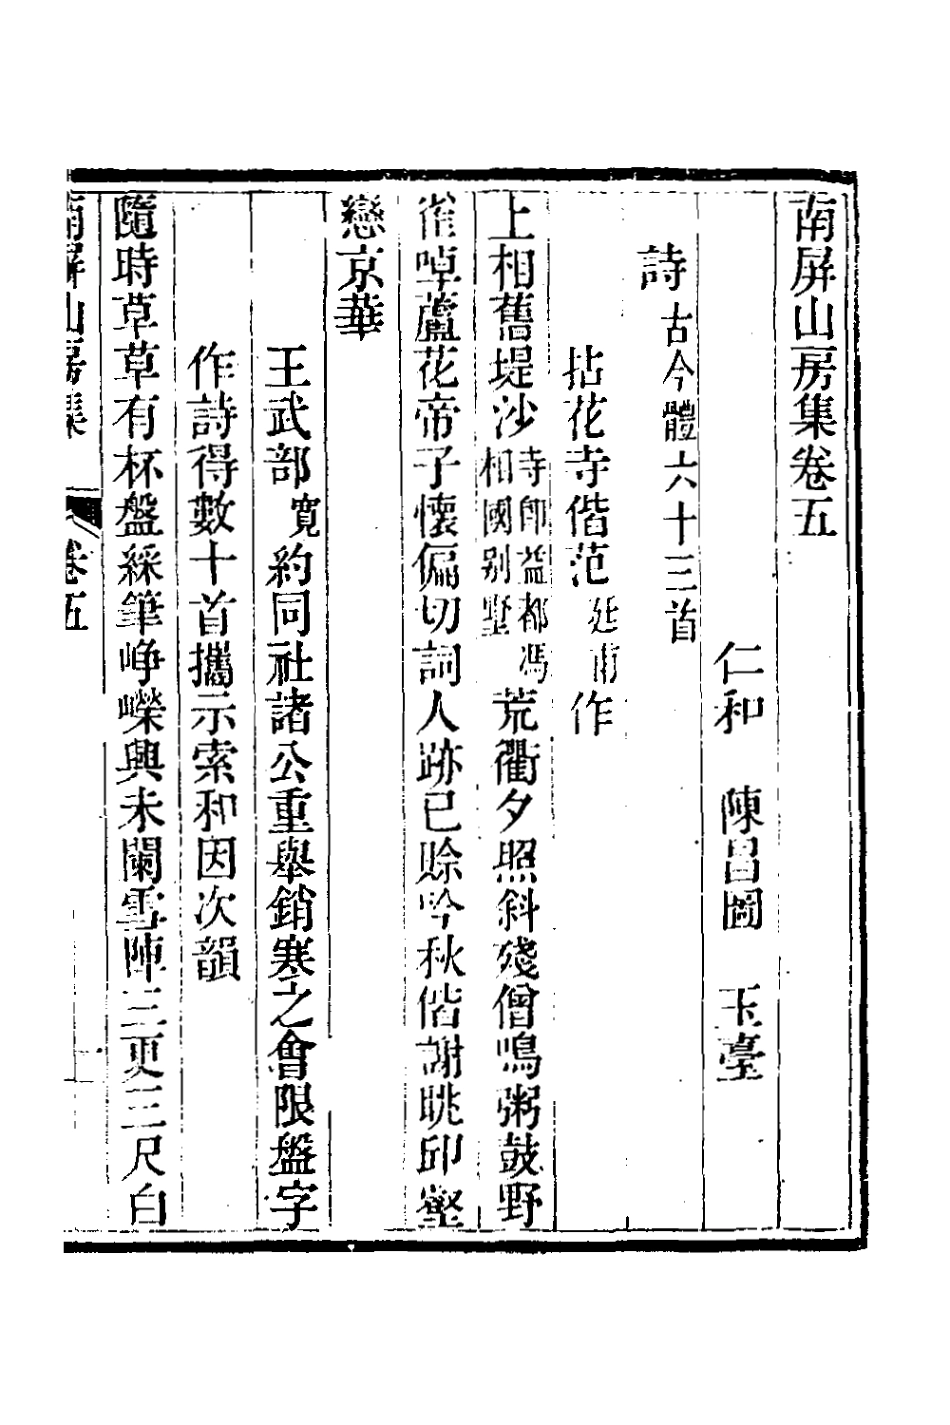 南屏山房集卷五
仁和　陳昌圖　玉臺
詩古今體六十三首
拈花寺偕范延甫作
上相舊堤沙寺卽益都馮相國別墅荒衢夕照斜殘僧鳴粥鼓野
雀啅蘆花帝子懷偏切詞人跡已賒吟秋偕謝眺卬壑
戀京華
王武部寬約同社諸公重舉銷寒之會限盤字
作詩得數十首攜示索和因次韻
隨時草草有杯盤綵筆崢嶸興未闌雪陣三更三尺白
南屏山房集　卷五　一